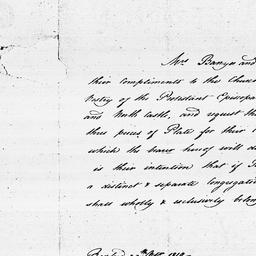 Mrs. Banyer and
their compliments to the Church
Vestry of the Protestant Episcopa
and North Castle, and request th
three pieces of Plate for their
which the bearer hereof will d
is their intention that if
a distinct & separate congregatio
shall wholly & exclusively belon